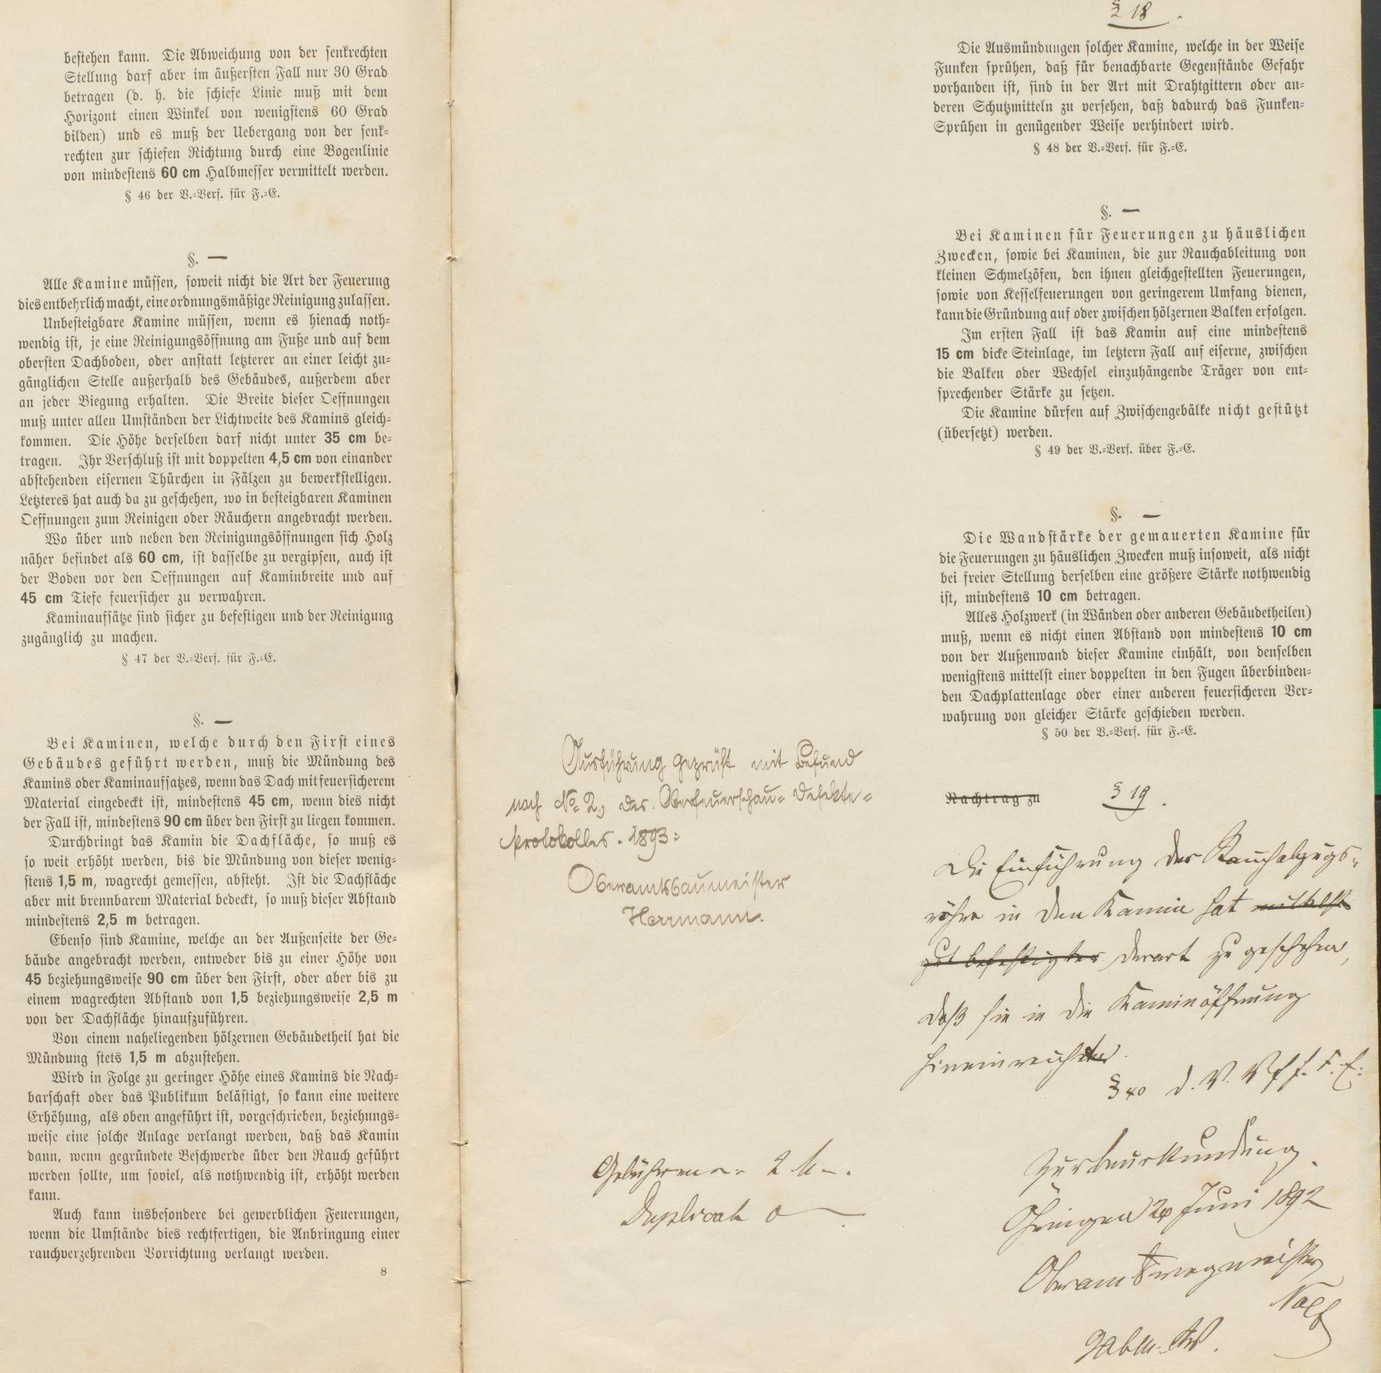 bestehen kann. Die Abweichung von der senkrechten
Stellung darf aber im äußersten Fall nur 30 Grad
betragen (d. h. die schiefe Linie muß mit dem
Horizont einen Winkel von wenigstens 60 Grad
bilden) und es muß der Uebergang von der senk-
rechten zur schiefen Richtung durch eine Bogenlinie
von mindestens 60 cm Halbmesser vermittelt werden.
§ 46 der V.-Verf. für F.-E.
§. —
Alle Kamine müssen, soweit nicht die Art der Feuerung
dies entbehrlich macht, eine ordnungsmäßige Reinigung zulassen.
Unbesteigbare Kamine müssen, wenn es hienach noth-
wendig ist, je eine Reinigungsöffnung am Fuße und auf dem
obersten Dachboden, oder anstatt letzterer an einer leicht zu-
gänglichen Stelle außerhalb des Gebäudes, außerdem aber
an jeder Biegung erhalten. Die Breite dieser Oeffnungen
muß unter allen Umständen der Lichtweite des Kamins gleich-
kommen. Die Höhe derselben darf nicht unter 35 cm be-
tragen. Ihr Verschluß ist mit doppelten 4,5 cm von einander
abstehenden eisernen Thürchen in Fälzen zu bewerkstelligen.
Letzteres hat auch da zu geschehen, wo in besteigbaren Kaminen
Oeffnungen zum Reinigen oder Räuchern angebracht werden.
Wo über und neben den Reinigungsöffnungen sich Holz
näher befindet als 60 cm, ist dasselbe zu vergipsen, auch ist
der Boden vor den Oeffnungen auf Kaminbreite und auf
45 cm Tiefe feuersicher zu verwahren.
Kaminaufsätze sind sicher zu befestigen und der Reinigung
zugänglich zu machen.
§ 47 der V.-Verf. für F.-E.
§. —
Bei Kaminen, welche durch den First eines
Gebäudes geführt werden, muß die Mündung des
Kamins oder Kaminaufsatzes, wenn das Dach mit feuersicherem
Material eingedeckt ist, mindestens 45 cm, wenn dies nicht
der Fall ist, mindestens 90 cm über den First zu liegen kommen.
Durchdringt das Kamin die Dachfläche, so muß es
so weit erhöht werden, bis die Mündung von dieser wenig-
stens 1,5 m, wagrecht gemessen, absteht. Ist die Dachfläche
aber mit brennbarem Material bedeckt, so muß dieser Abstand
mindestens 2,5 m betragen.
Ebenso sind Kamine, welche an der Außenseite der Ge-
bäude angebracht werden, entweder bis zu einer Höhe von
45 beziehungsweise 90 cm über den First, oder aber bis zu
einem wagrechten Abstand von 1,5 beziehungsweise 2,5 m
von der Dachfläche hinaufzuführen.
Von einem naheliegenden hölzernen Gebäudetheil hat die
Mündung stets 1,5 m abzustehen.
Wird in Folge zu geringer Höhe eines Kamins die Nach-
barschaft oder das Publikum belästigt, so kann eine weitere
Erhöhung, als oben angeführt ist, vorgeschrieben, beziehungs-
weise eine solche Anlage verlangt werden, daß das Kamin
dann, wenn gegründete Beschwerde über den Rauch geführt
werden sollte, um soviel, als nothwendig ist, erhöht werden
kann.
Auch kann insbesondere bei gewerblichen Feuerungen,
wenn die Umstände dies rechtfertigen, die Anbringung einer
rauchverzehrenden Vorrichtung verlangt werden.
8
Ausführung geprüft mit Befund
nach No 2, des Oberfeuerschau-Defekts-
protokolles. 1893.
Oberamtsbaumeister
Herrmann.
Gebühren 2 M –.
Duplicat o —
§ 18.
Die Ausmündungen solcher Kamine, welche in der Weise
Funken sprühen, daß für benachbarte Gegenstände Gefahr
vorhanden ist, sind in der Art mit Drahtgittern oder an-
deren Schutzmitteln zu versehen, daß dadurch das Funken-
Sprühen in genügender Weise verhindert wird.
§ 48 der V.-Verf. für F.-E.
§. —
Bei Kaminen für Feuerungen zu häuslichen
Zwecken, sowie bei Kaminen, die zur Rauchableitung von
kleinen Schmelzöfen, den ihnen gleichgestellten Feuerungen,
sowie von Kesselfeuerungen von geringerem Umfang dienen,
kann die Gründung auf oder zwischen hölzernen Balken erfolgen.
Im ersten Fall ist das Kamin auf eine mindestens
15 cm dicke Steinlage, im letztern Fall auf eiserne, zwischen
die Balken oder Wechsel einzuhängende Träger von ent-
sprechender Stärke zu setzen.
Die Kamine dürfen auf Zwischengebälke nicht gestützt
(übersetzt) werden.
§ 49 der V.-Verf. über F.-E.
§. —
Die Wandstärke der gemauerten Kamine für
die Feuerungen zu häuslichen Zwecken muß insoweit, als nicht
bei freier Stellung derselben eine größere Stärke nothwendig
ist, mindestens 10 cm betragen.
Alles Holzwerk (in Wänden oder anderen Gebäudetheilen)
muß, wenn es nicht einen Abstand von mindestens 10 cm
von der Außenwand dieser Kamine einhält, von denselben
wenigstens mittelst einer doppelten in den Fugen überbinden-
den Dachplattenlage oder einer anderen feuersicheren Ver-
wahrung von gleicher Stärke geschieden werden.
§ 50 der V.-Verf. für F.-E.
Nachtrag zu § 19.
Die Einführung der Rauchabzugs-
rohre in den Kamin hat mittelst
gut befestigter derart zu geschehen,
daß sie in die Kaminöffnung
hineinreichen.
§ 40 d. V. Vf. f. F. E.
Zur Beurkundung
Öhringen 24 Juni 1892
Oberamtswegmeister